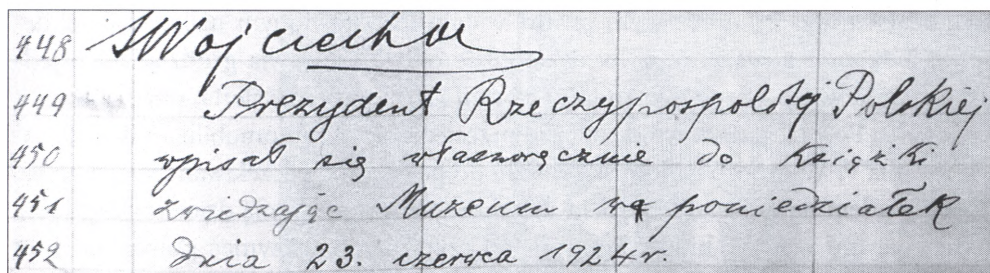 448 SWojciechow
449 Prezydent Rzeczypospolitej Polskiej
450 wpisał się własnoręcznie do książki
451 zwiedzając Muzeum w poniedziałek
452 dnia 23. czerwca 1924 r.